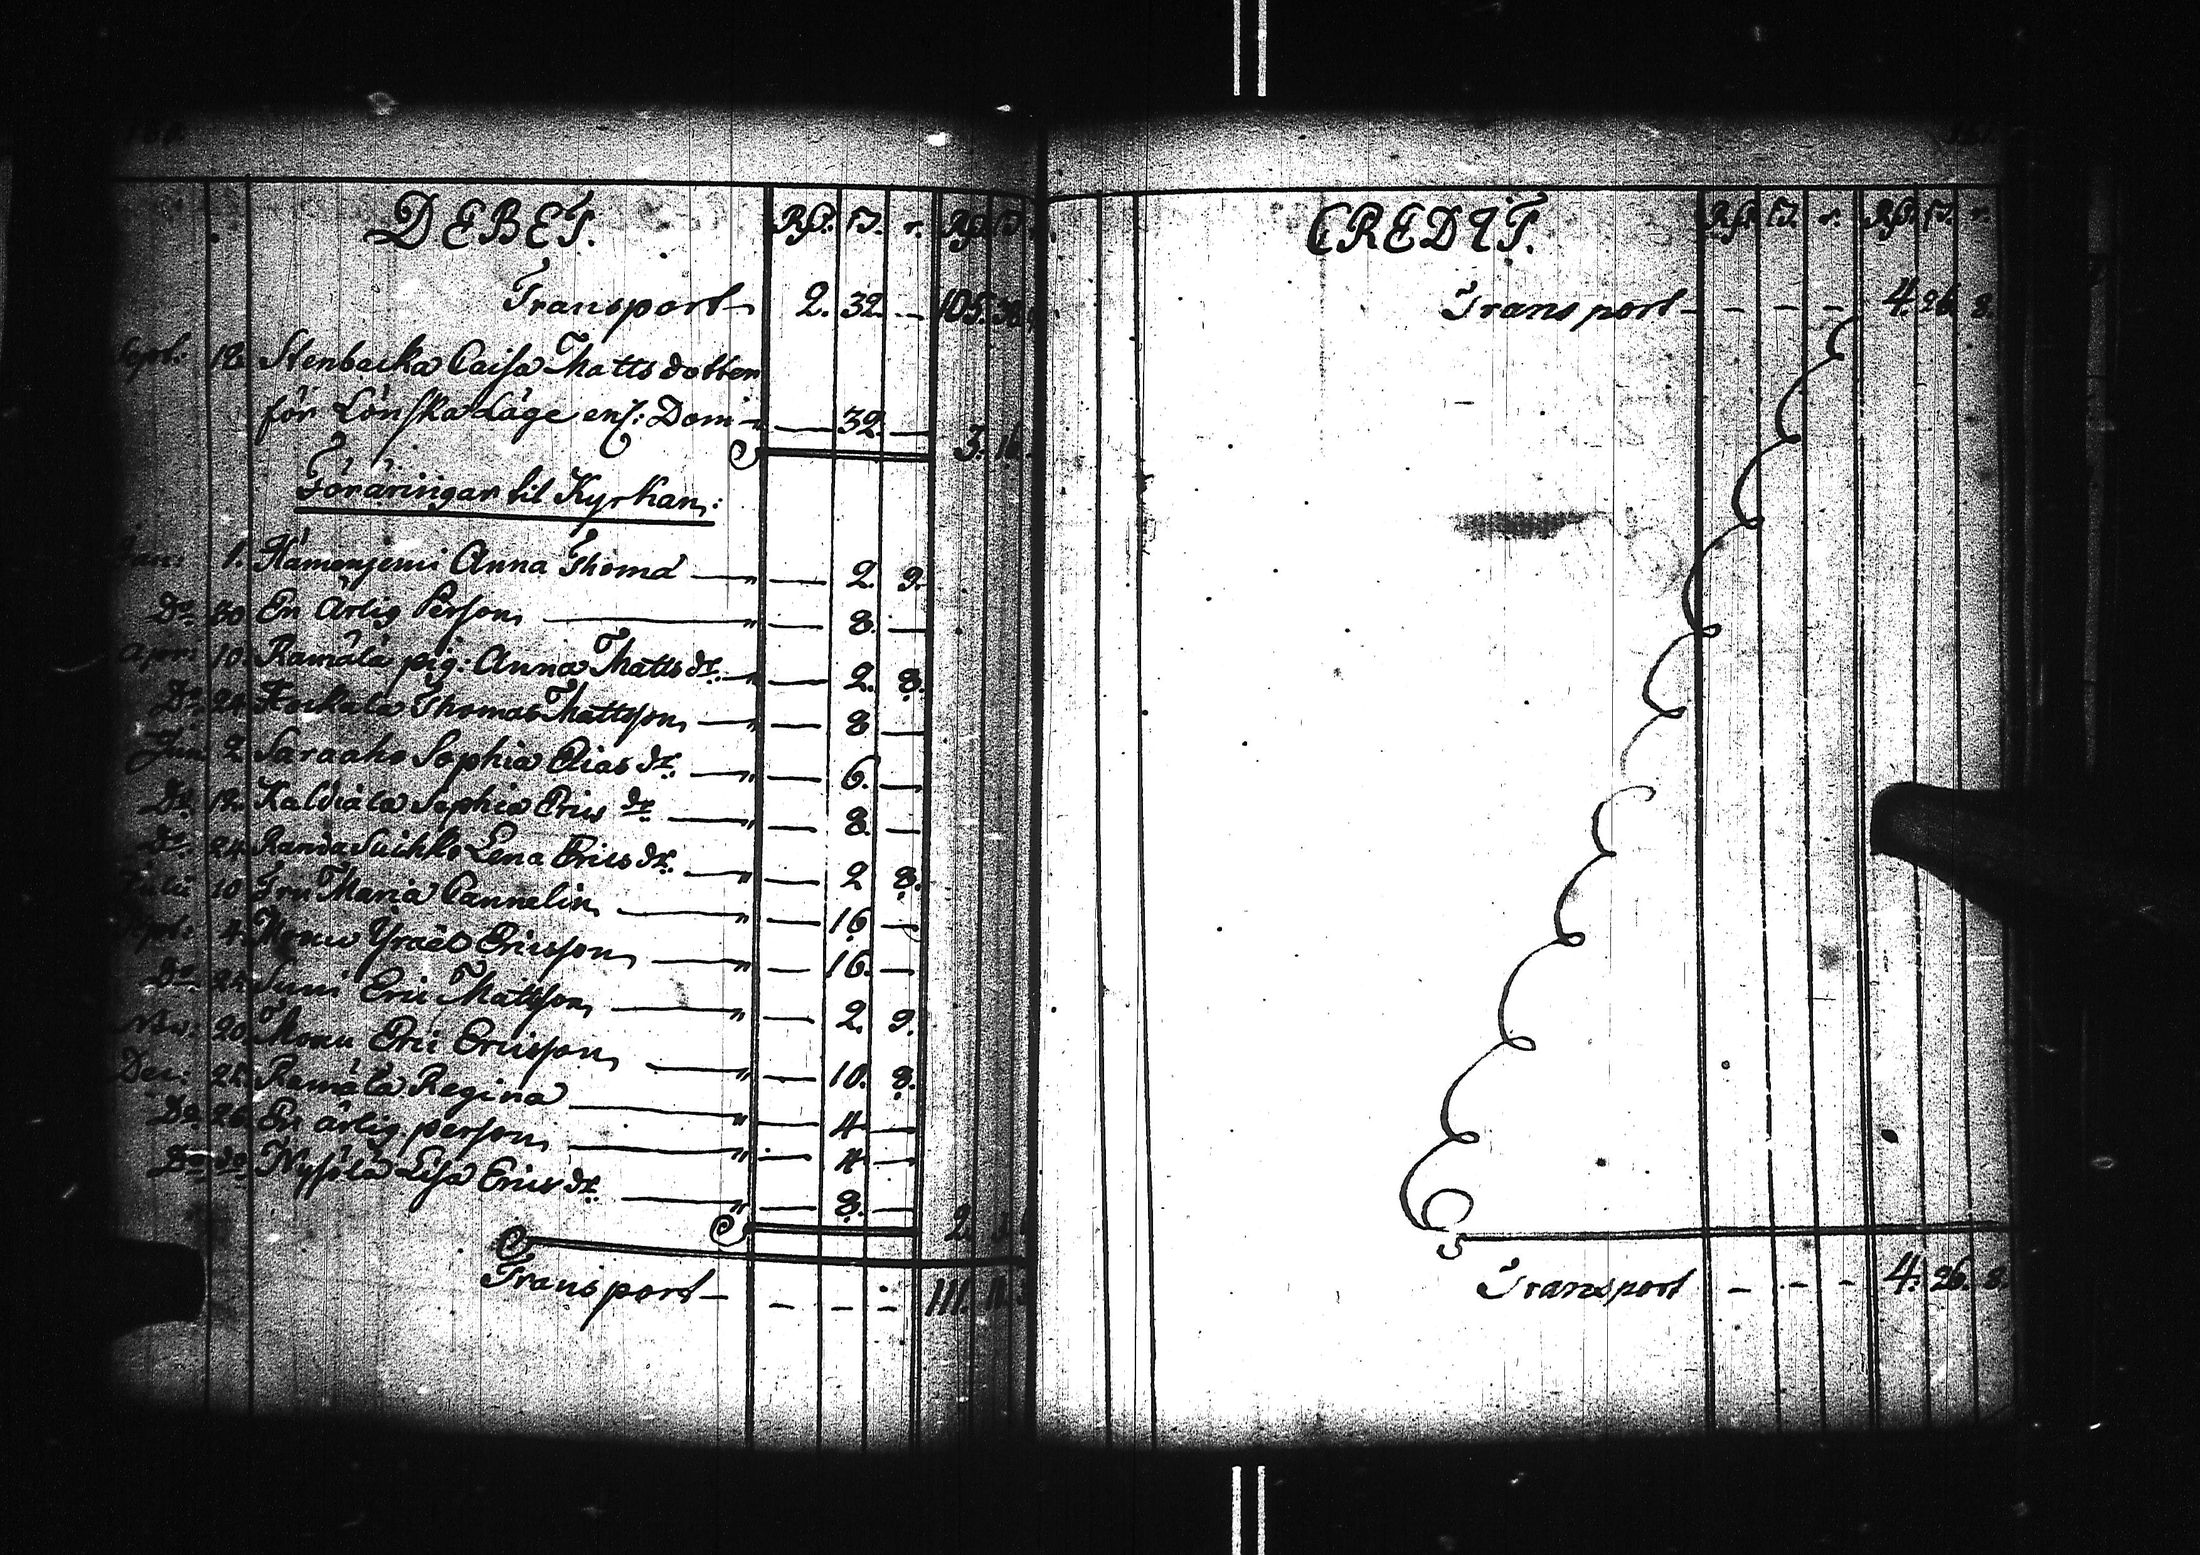 DEBET. Rß. ß. r. Rß ß
Transport 2. 32. — 105.
Sept: 12. Stenbacka Caisa Mattsdotter
för Lönskaläge enl: Dom — 32. — 3. 16.
Föräringar til Kyrkan:
Jan: 1. Hämenjemi Anna Thomæ — 2. 9.
Do 30 En Ärlig Person — 8. —
Apr: 10. Ramälä pig: Anna Matts dr. — 2. 8.
Do 24. Kockala Thomas Mattsson — 8 —
Jun 2 Saraaho Sophia Elias dr. — 6. —
Do 12. Kaldiala Sophia Erics dr — 8. —
Do 24 Randa Suihko Lena Erics dr. — 2 8.
Julii 10 Fru Maria Cannelin — 16 —
Sept: 4. Monu Ysrael Ericsson — 16. —
Do 25. Suni Eric Mattsson — 2. 9.
Nov: 20. Monu Eric Ericsson — 10. 8.
Dec: 25. Ramälä Regina — 4 —
Do 26. En ärlig person — 4 —
Do do Nyssölä Lisa Erics dr. — 8. — 2.
Transport — — — — 111. 11.
CREDIT. Rß. ß. r. Rß. ß. r.
Transport — — — — 4. 26. 8.
Transport — — — 4. 26. 8.